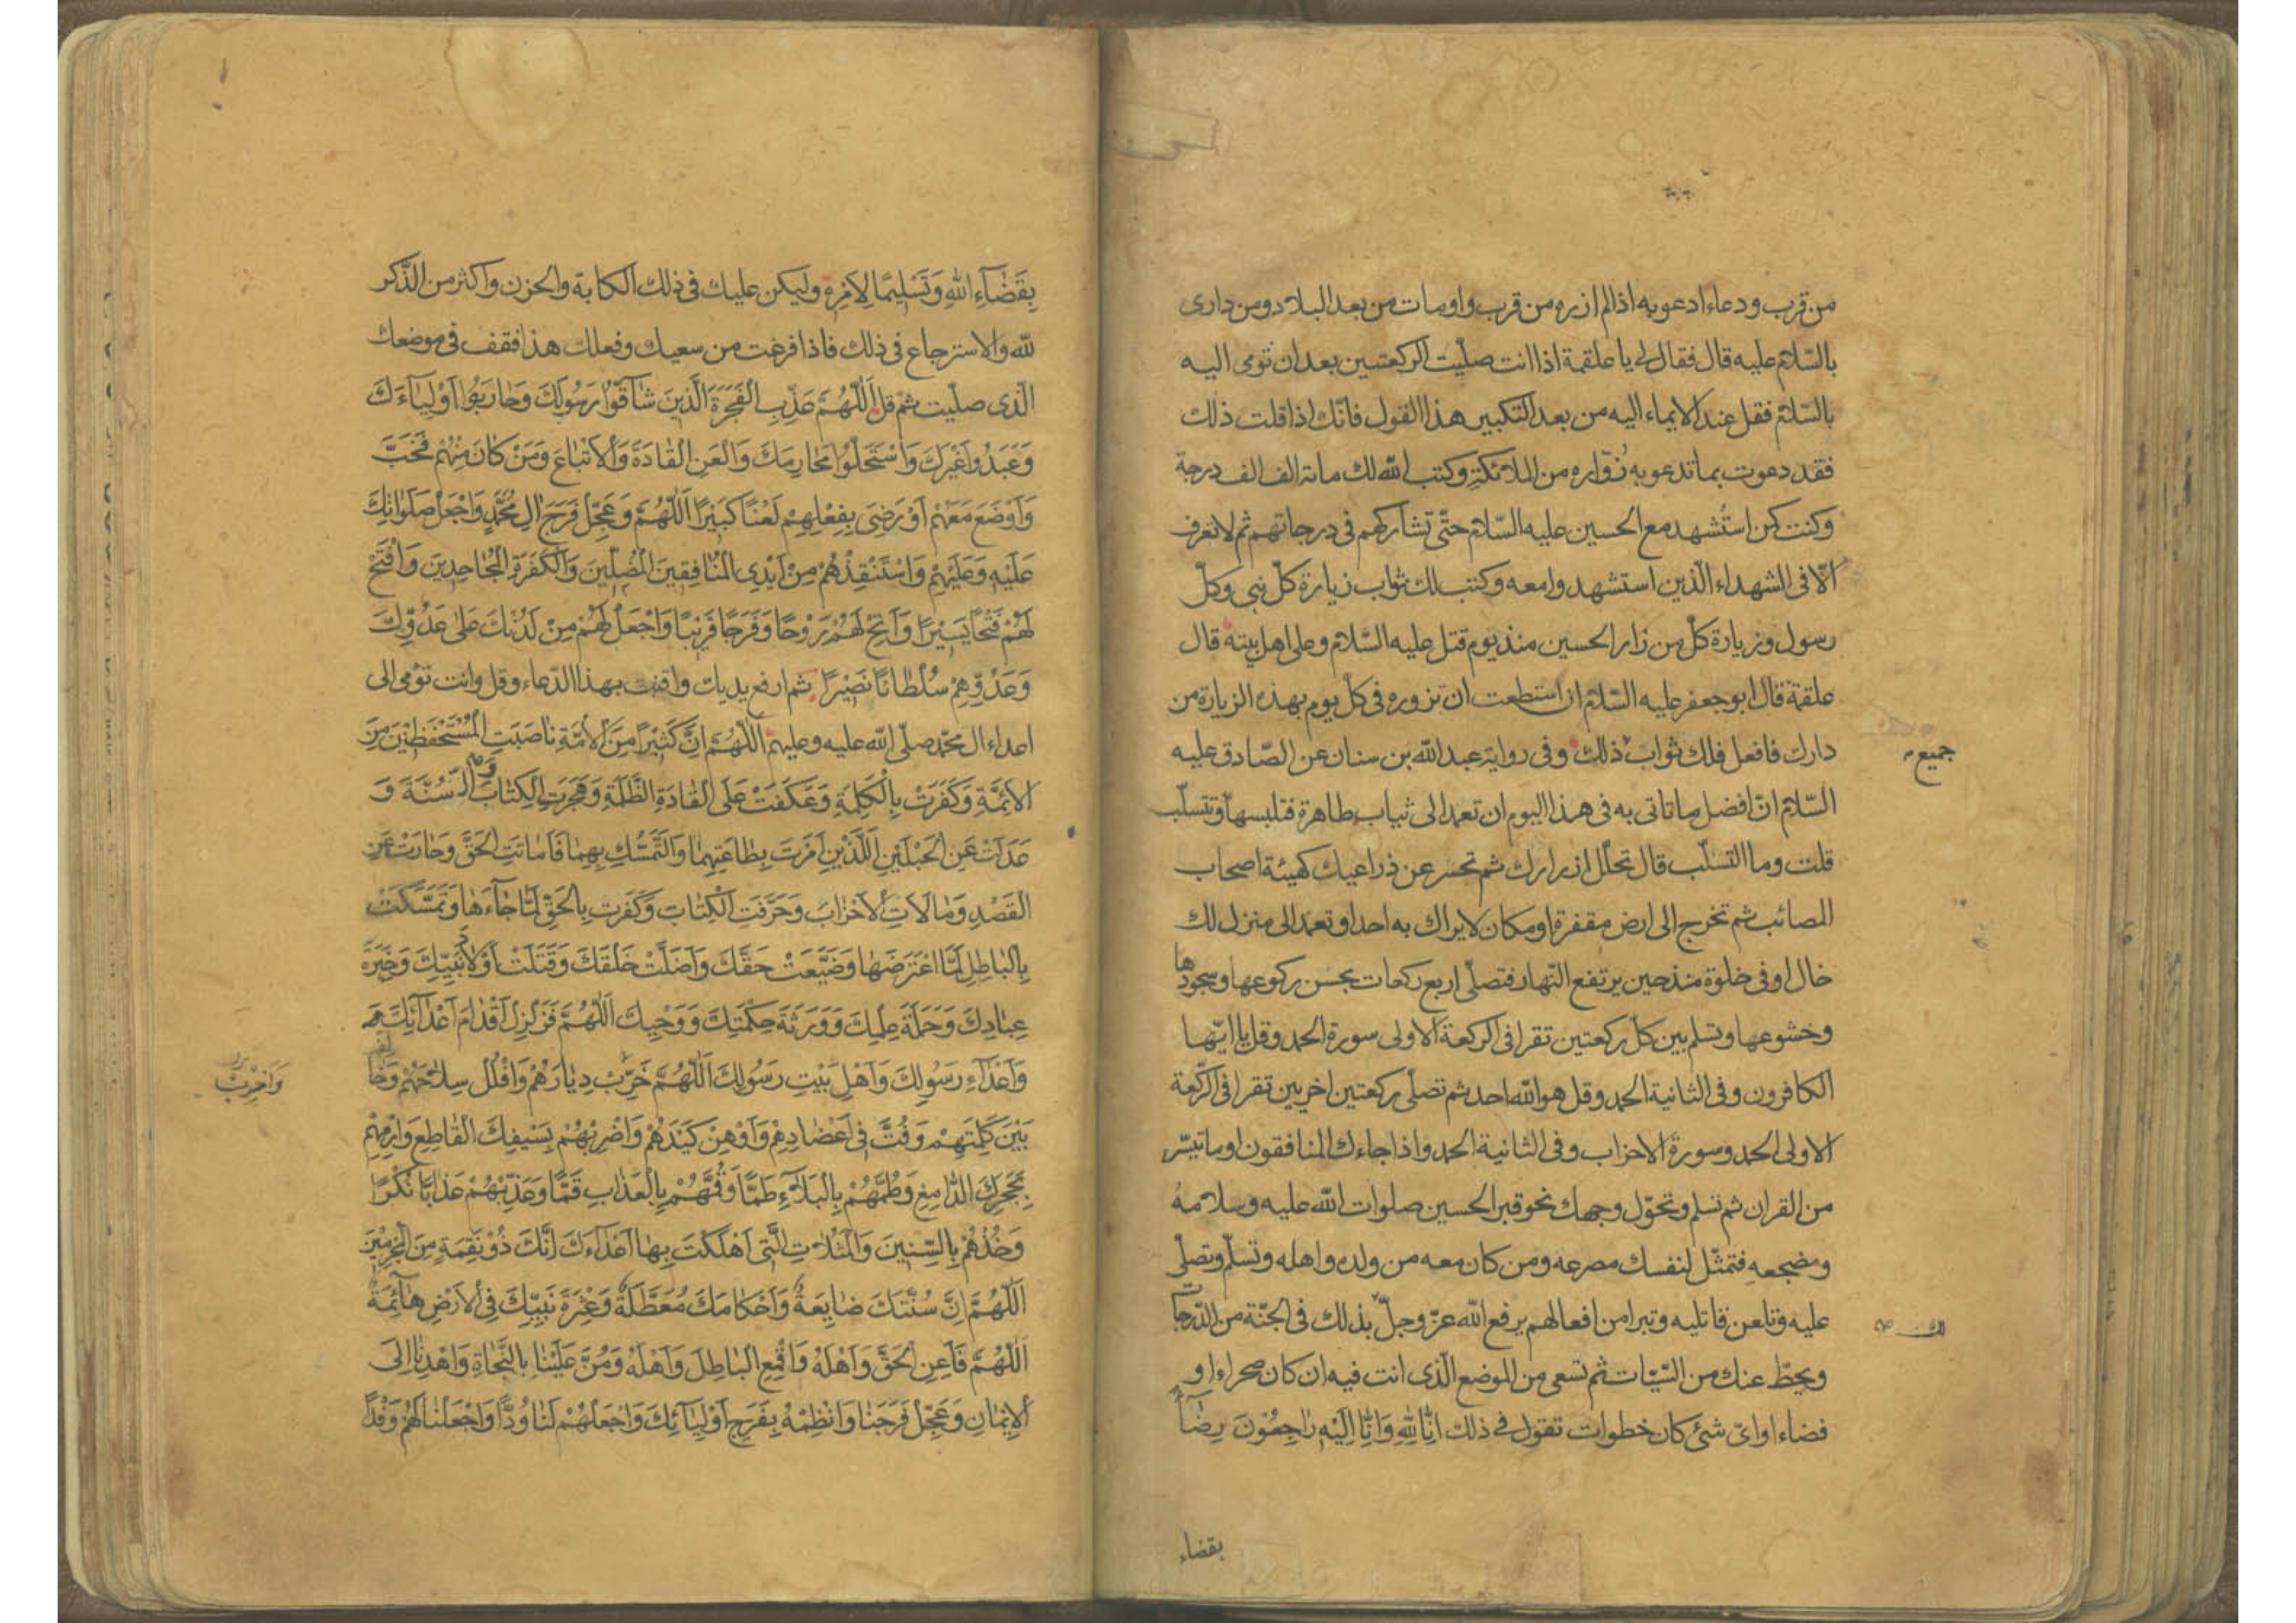 من قرب ودعاء ادعو به اذا لم ازره من قرب واومات من بعد البلاد ومن داری
بالسّلام عليه قال فقال لے يا علقمة اذا انت صلّيت الركعتين بعد ان تومی اليه
بالسّلام فقل عند الايماء اليه من بعد التكبير هذا القول فانّك اذا قلت ذلك
فقد دعوت بما تدعو به زوّاره من الملائكة وكتب الله لك مائة الف الف درجة
وكنت كمن استُشهد مع الحسين عليه السّلام حتّى تشاركهم فی درجاتهم ثم لا تعرف
الّا فی الشهداء الّذين استشهدوا معه وكتب لك ثواب زيارة كلّ نبی وكلّ
رسول وزيارة كلّ من زار الحسين منذ يوم قتل عليه السّلام وعلى اهل بيته قال
علقمة قال ابو جعفر عليه السّلام ان استطعت ان تزوره فی كلّ يوم بهذه الزيارة من
دارك فافعل فلك ثواب ذلك وفی رواية عبد الله بن سنان عن الصّادق عليه
جميع
السّلام انّ افضل ما تاتی به فی هذا اليوم ان تعمد الى ثياب طاهرة فتلبسها وتتسلّب
قلت وما التسلّب قال تحلّل ازرارك ثم تحسر عن ذراعيك كهيئة اصحاب
المصائب ثم تخرج الى ارض مقفرة او مكان لا يراك به احد او تعمد الى منزل لك
خال او فی خلوة منذ حين يرتفع النّهار فتصلّی اربع ركعات يحسن ركوعها وسجودها
وخشوعها وتسلم بين كلّ ركعتين تقرا فی الركعة الاولى سورة الحمد وقل يا ايّها
الكافرون وفی الثانية الحمد وقل هو الله احد ثم تصلّی ركعتين اخريين تقرا فی الرّكعة
الاولى الحمد وسورة الاحزاب وفی الثانية الحمد واذا جاءك المنافقون او ما تيسّر
من القران ثم تسلم وتحوّل وجهك نحو قبر الحسين صلوات الله عليه وسلامهُ
ومضجعه فتمثّل لنفسك مصرعه ومن كان معه من ولده واهله وتسلّم وتصلّی
عليه وتلعن قاتليه وتبرا من افعالهم يرفع الله عزّ وجلّ بذلك فی الجنّة من الدّرجات
لك
ويحطّ عنك من السّيّات ثم تسعى من الموضع الّذی انت فيه ان كان صحراء او
فضاء او ایّ شئ كان خطوات تقول فے ذلك اِنّا لِلّهِ وَاِنّا اِلَيْهِ رَاجِعُونَ رِضًا
بقضاء
بِقَضَآءِ اللهِ وَتَسْلِيمًا لِاَمْرِهِ وليكن عليك فی ذلك الكابة والحزن واكثر من الذّكر
لله والاسترجاع فی ذلك فاذا فرغت من سعيك وفعلك هذا فقف فی موضعك
الّذی صليت ثم قل اَللّهُمَّ عَذِّبِ الْفَجَرَةَ الَّذِينَ شَاقُّوا رَسُولَكَ وَحَارَبُوا اَوْلِيَآءَكَ
وَعَبَدُوا غَيْرَكَ وَاسْتَحَلُّوا مَحَارِمَكَ وَالْعَنِ الْقَادَةَ وَالْاَتْبَاعَ وَمَنْ كَانَ مِنْهُمْ فَخَبَّ
وَاَوْضَعَ مَعَهُمْ اَوْ رَضِیَ بِفِعْلِهِمْ لَعْنًا كَثِيرًا اَللّهُمَّ وَعَجِّلْ فَرَجَ الِ مُحَمَّدٍ وَاجْعَلْ صَلَوَاتِكَ
عَلَيْهِ وَعَلَيْهِمْ وَاسْتَنْقِذْهُمْ مِنْ اَيْدِی الْمُنَافِقِينَ الْمُضِلِّينَ وَالْكَفَرَةِ الْجَاحِدِينَ وَافْتَحْ
لَهُمْ فَتْحًا يَسِيرًا وَاَتِحْ لَهُمْ رَوْحًا وَفَرَجًا قَرِيبًا وَاجْعَلْ لَهُمْ مِنْ لَدُنْكَ عَلَى عَدُوِّكَ
وَعَدُوِّهِمْ سُلْطَانًا نَصِيرًا ثم ارفع يديك واقنت بهذا الدّعاء وقل وانت تؤمی الى
اعداء ال محمّد صلّى الله عليه وعليهم اَللّهُمَّ اِنَّ كَثِيرًا مِنَ الْاُمَّةِ نَاصَبَتِ الْمُسْتَحْفَظِينَ مِنَ
الْاَئِمَّةِ وَكَفَرَتْ بِالْكَلِمَةِ وَعَكَفَتْ عَلَى الْقَادَةِ الظَّلَمَةِ وَهَجَرَتِ الْكِتَابَ وَالسُّنَّةَ وَ
عَدَلَتْ عَنِ الْحَبْلَيْنِ اللَّذَيْنِ اَمَرْتَ بِطَاعَتِهِمَا وَالتَّمَسُّكِ بِهِمَا فَاَمَاتَتِ الْحَقَّ وَحَارَتْ عَنِ
الْقَصْدِ وَمَالَاَتِ الْاَحْزَابَ وَحَرَّفَتِ الْكِتَابَ وَكَفَرَتْ بِالْحَقِّ لَمَّا جَآءَهَا وَتَمَسَّكَتْ
بِالْبَاطِلِ لَمَّا اعْتَرَضَهَا وَضَيَّعَتْ حَقَّكَ وَاَضَلَّتْ خَلْقَكَ وَقَتَلَتْ اَوْلَادَ نَبِيِّكَ وَخِيَرَةَ
عِبَادِكَ وَحَمَلَةَ عِلْمِكَ وَوَرَثَةَ حِكْمَتِكَ وَوَحْيِكَ اَللّهُمَّ فَزَلْزِلْ اَقْدَامَ اَعْدَآئِكَ
وَاَعْدَآءِ رَسُولِكَ وَاَهْلِ بَيْتِ رَسُولِكَ اَللّهُمَّ خَرِّبْ دِيَارَهُمْ وَافْلُلْ سِلَاحَهُمْ وَخَالِفْ
وَاَخْرِبْ
بَيْنَ كَلِمَتِهِمْ وَفُتَّ فِی اَعْضَادِهِمْ وَاَوْهِنْ كَيْدَهُمْ وَاضْرِبْهُمْ بِسَيْفِكَ الْقَاطِعِ وَارْمِهِمْ
بِحَجَرِكَ الدَّامِغِ وَطُمَّهُمْ بِالْبَلَآءِ طَمًّا وَقُمَّهُمْ بِالْعَذَابِ قَمًّا وَعَذِّبْهُمْ عَذَابًا نُكْرًا
وَخُذْهُمْ بِالسِّنِينَ وَالْمَثُلَاتِ الَّتِی اَهْلَكْتَ بِهَا اَعْدَآءَكَ اِنَّكَ ذُو نَقِمَةٍ مِنَ الْمُجْرِمِينَ
اَللّهُمَّ اِنَّ سُنَّتَكَ ضَايِعَةٌ وَاَحْكَامَكَ مُعَطَّلَةٌ وَعِتْرَةَ نَبِيِّكَ فِی الْاَرْضِ هَآئِمَةٌ
اَللّهُمَّ فَاَعِنِ الْحَقَّ وَاَهْلَهُ وَاقْمَعِ الْبَاطِلَ وَاَهْلَهُ وَمُنَّ عَلَيْنَا بِالنَّجَاةِ وَاهْدِنَا اِلَى
الْاِيمَانِ وَعَجِّلْ فَرَجَنَا وَانْظِمْهُ بِفَرَجِ اَوْلِيَآئِكَ وَاجْعَلْهُمْ لَنَا وُدًّا وَاجْعَلْنَا لَهُمْ وَفْدًا